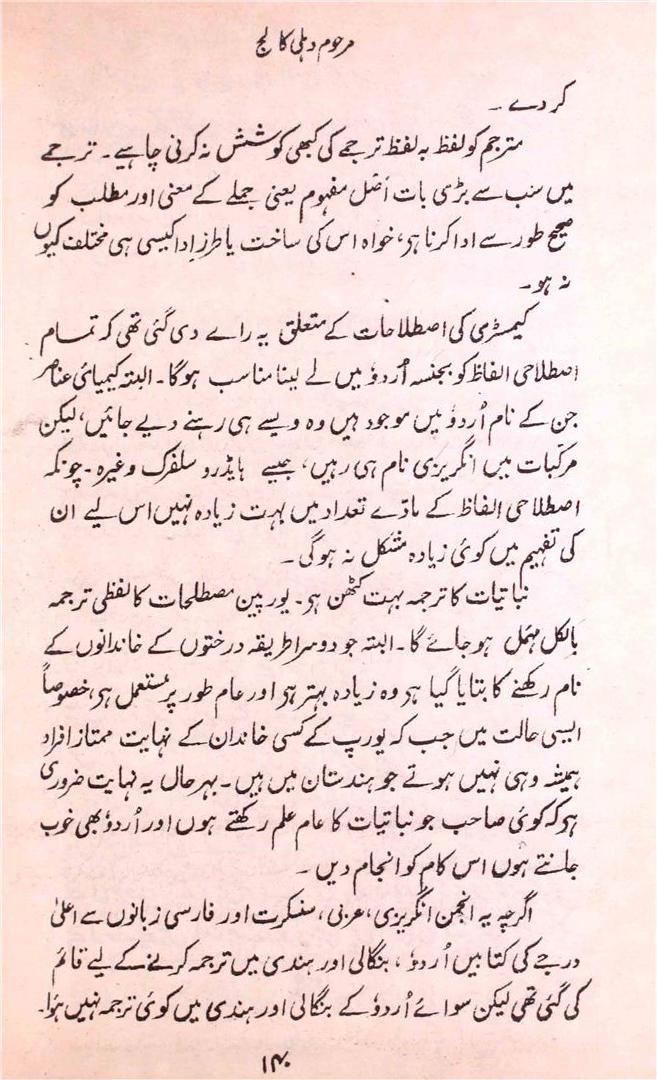 مرحوم دہلی کالج
کر دے ۔
مترجم کو لفظ بہ لفظ ترجمے کی کبھی کوشش نہ کرنی چاہیے ۔ ترجمے
میں سب سے بڑی بات اصل مفہوم یعنی جملے کے معنی اور مطلب کو
صحیح طور سے ادا کرنا ہی، خواہ اس کی ساخت یا طرزِ ادا کیسی ہی مختلف کیوں
نہ ہو ۔
کیمسٹری کی اصطلاحات کے متعلق یہ راے دی گئی تھی کہ تمام
اصطلاحی الفاظ کو بجنسہ اُردوٗ میں لے لینا مناسب ہوگا ۔ البتہ کیمیائی عناصر
جن کے نام اُردوٗ میں موجود ہیں وہ ویسے ہی رہنے دیے جائیں، لیکن
مرکبات میں انگریزی نام ہی رہیں، جیسے ہایڈرو سلفرک وغیرہ ۔ چونکہ
اصطلاحی الفاظ کے مادّے تعداد میں بہت زیادہ نہیں اس لیے ان
کی تفہیم میں کوئی زیادہ مشکل نہ ہوگی ۔
نباتیات کا ترجمہ بہت کٹھن ہی ۔ یورپین مصطلحات کا لفظی ترجمہ
بالکل مہمل ہو جائے گا ۔ البتہ جو دوسرا طریقہ درختوں کے خاندانوں کے
نام رکھنے کا بتایا گیا ہی وہ زیادہ بہتر ہی اور عام طور پر مستعمل ہی، خصوصاً
ایسی حالت میں جب کہ یورپ کے کسی خاندان کے نہایت ممتاز افراد
ہمیشہ وہی نہیں ہوتے جو ہندستان میں ہیں ۔ بہرحال یہ نہایت ضروری
ہی کہ کوئی صاحب جو نباتیات کا عام علم رکھتے ہوں اور اُردوٗ بھی خوب
جانتے ہوں اس کام کو انجام دیں ۔
اگرچہ یہ انجمن انگریزی، عربی، سنسکرت اور فارسی زبانوں سے اعلیٰ
درجے کی کتابیں اُردوٗ ، بنگالی اور ہندی میں ترجمہ کرنے کے لیے قائم
کی گئی تھی لیکن سوائے اُردوٗ کے بنگالی اور ہندی میں کوئی ترجمہ نہیں ہوٗا ۔
۱۴۰